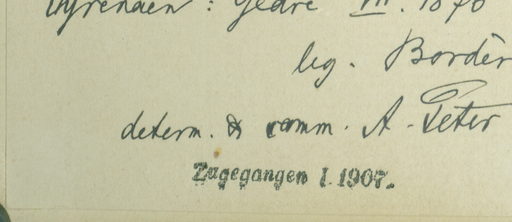 Pyrenäen : Gèdre VII. 1870
leg. Bordèr
determ. & comm. A. Peter
Zugegangen I. 1907.